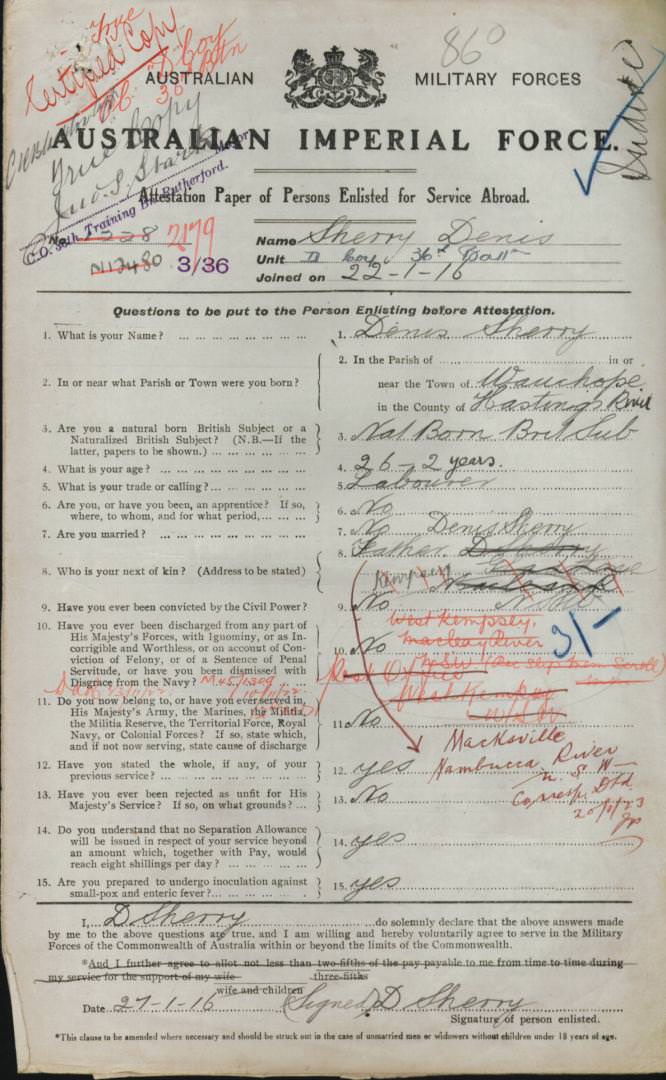 True
Certified Copy
"D" Coy
36 Bttn
860
AUSTRALIAN MILITARY FORCES
AUSTRALIAN IMPERIAL FORCE.
True Copy
Jno. S. Stark
Major
C.O. 36th Training Bn. Rutherford.
Attestation Paper of Persons Enlisted for Service Abroad.
No. 1228 2179
N13480 3/36
Name Sherry Denis
Unit D Coy 36th Batt
Joined on 22-1-16
Questions to be put to the Person Enlisting before Attestation.
1. What is your Name? ... 1. Denis Sherry
2. In or near what Parish or Town were you born? 2. In the Parish of ... in or
near the Town of Wauchope
in the County of Hastings River
3. Are you a natural born British Subject or a
Naturalized British Subject? (N.B.—If the
latter, papers to be shown.) ... 3. Nat Born Brit Sub
4. What is your age? ... 4. 26-2 years.
5. What is your trade or calling? ... 5. Labourer
6. Are you, or have you been, an apprentice? If so,
where, to whom, and for what period, ... 6. No
7. Are you married? ... 7. No Denis Sherry
8. Who is your next of kin? (Address to be stated) 8. Father D Sherry
Kempsey
N.S.W
9. Have you ever been convicted by the Civil Power? 9. No
West Kempsey,
Macleay River
NSW
3/-
10. Have you ever been discharged from any part of
His Majesty's Forces, with Ignominy, or as In-
corrigible and Worthless, or on account of Con-
viction of Felony, or of a Sentence of Penal
Servitude, or have you been dismissed with
Disgrace from the Navy? 10. No
Post Office
West Kempsey
N.S.W
11. Do you now belong to, or have you ever served in,
His Majesty's Army, the Marines, the Militia,
the Militia Reserve, the Territorial Force, Royal
Navy, or Colonial Forces? If so, state which,
and if not now serving, state cause of discharge 11. No
Macksville
Nambucca River
N.S.W—
12. Have you stated the whole, if any, of your
previous service? ... 12. yes
13. Have you ever been rejected as unfit for His
Majesty's Service? If so, on what grounds? ... 13. No
14. Do you understand that no Separation Allowance
will be issued in respect of your service beyond
an amount which, together with Pay, would
reach eight shillings per day? ... 14. yes
15. Are you prepared to undergo inoculation against
small-pox and enteric fever? ... 15. yes
I, D Sherry do solemnly declare that the above answers made
by me to the above questions are true, and I am willing and hereby voluntarily agree to serve in the Military
Forces of the Commonwealth of Australia within or beyond the limits of the Commonwealth.
*And I further agree to allot not less than two-fifths of the pay payable to me from time to time during
my service for the support of my wife three-fifths
wife and children
Date 27-1-16 (Signed) D Sherry
Signature of person enlisted.
*This clause to be amended where necessary and should be struck out in the case of unmarried men or widowers without children under 18 years of age.